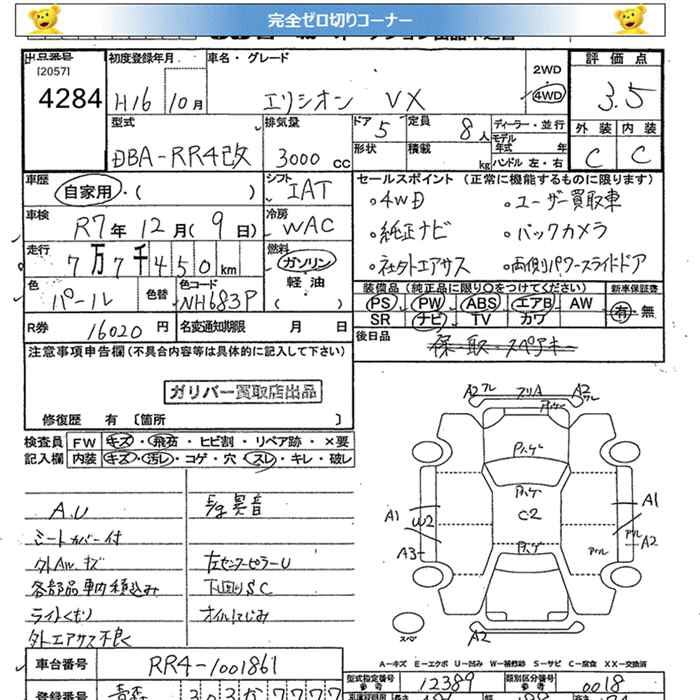 完全ゼロ切りコーナー
出品番号
[2057]
4284
初度登録年月
H16 10月
車名・グレード
エリシオン VX
2WD
4WD
評価点
3.5
型式
DBA-RR4改
排気量
3000 cc
ドア
5
形状
定員
8人
積載
kg
ディーラー・並行
モデル年式 年
ハンドル 左・右
外装 内装
C C
車歴
自家用・( )
シフト
IAT
セールスポイント (正常に機能するものに限ります)
・4WD ・ユーザー買取車
・純正ナビ ・バックカメラ
・社外エアサス ・両側パワースライドドア
車検
R7年12月(9日)
冷房
WAC
走行
7万7千450km
燃料
ガソリン
軽油
( )
色
パール
色替
色コード
NH683P
装備品 (純正品に限り○をつけてください) 新車保証書
PS PW ABS エアB AW
SR ナビ TV カワ
有・無
R券
16020円
名変通知期限 月 日
後日品
注意事項申告欄 (不具合内容等は具体的に記入して下さい)
ガリバー買取店出品
修復歴 有 〔箇所 〕
検査員記入欄
FW キズ・飛石・ヒビ割・リペア跡・×要
内装 キズ・汚レ・コゲ・穴・スレ・キレ・破レ
A.U
シートカバー付
外AWキズ
各部品車内積込み
ライトくもり
外エアサス不良
左センターピラーU
下回りSC
オイルにじみ
A2
フリA
A2
C2
A1
W2
A3
A1
A2
A2
スペア
A-キズ E-エクボ U-凹み W-補修跡 S-サビ C-腐食 XX-交換済
車台番号
RR4-1001861
型式指定番号
参考
12389
類別区分番号
参考
0018
登録番号
青森 303 な 7777